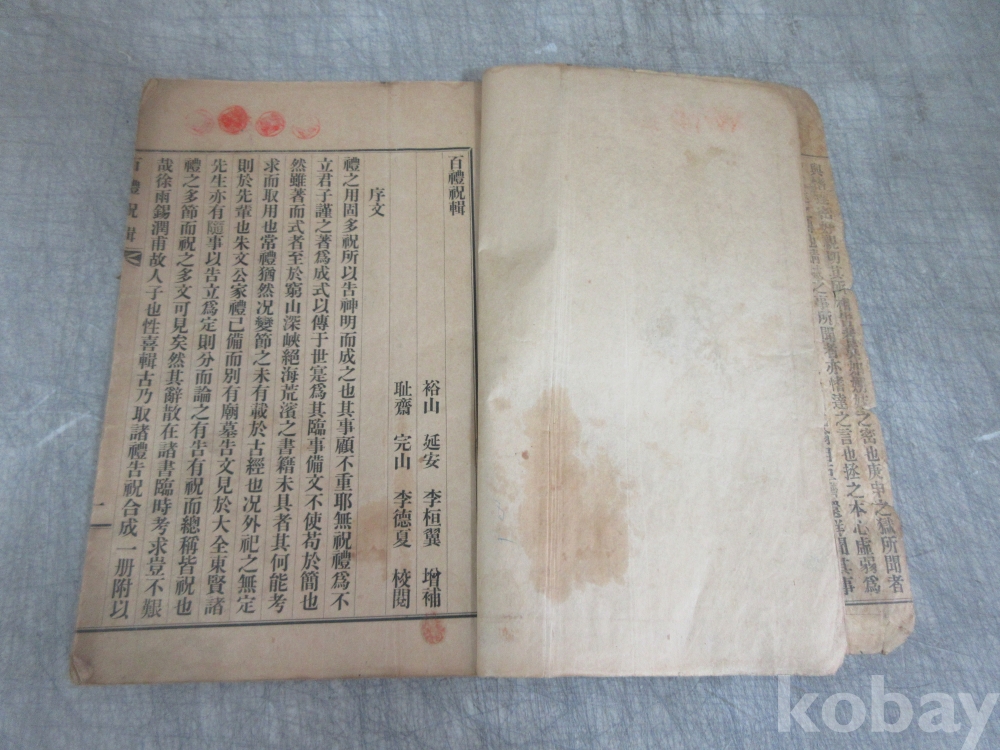 百禮祝輯
裕山 延安 李桓翼 增補
耻齋 完山 李德夏 校閱
序文
禮之用固多祝所以告神明而成之也其事顧不重耶無祝禮爲不
立君子謹之著爲成式以傳于世寔爲其臨事備文不使苟於簡也
然雖著而式者至於窮山深峽絕海荒濱之書籍未具者其何能考
求而取用也常禮猶然况變節之未有載於古經也况外祀之無定
則於先輩也朱文公家禮已備而別有廟墓告文見於大全東賢諸
先生亦有隨事以告立爲定則分而論之有告有祝而總稱皆祝也
禮之多節而祝之多文可見矣然其辭散在諸書臨時考求豈不艱
哉徐雨錫潤甫故人子也性喜輯古乃取諸禮告祝合成一册附以
百禮祝輯
一
之啻也庚申之獄所聞者
之言也拯之本心虛弱爲
kobay